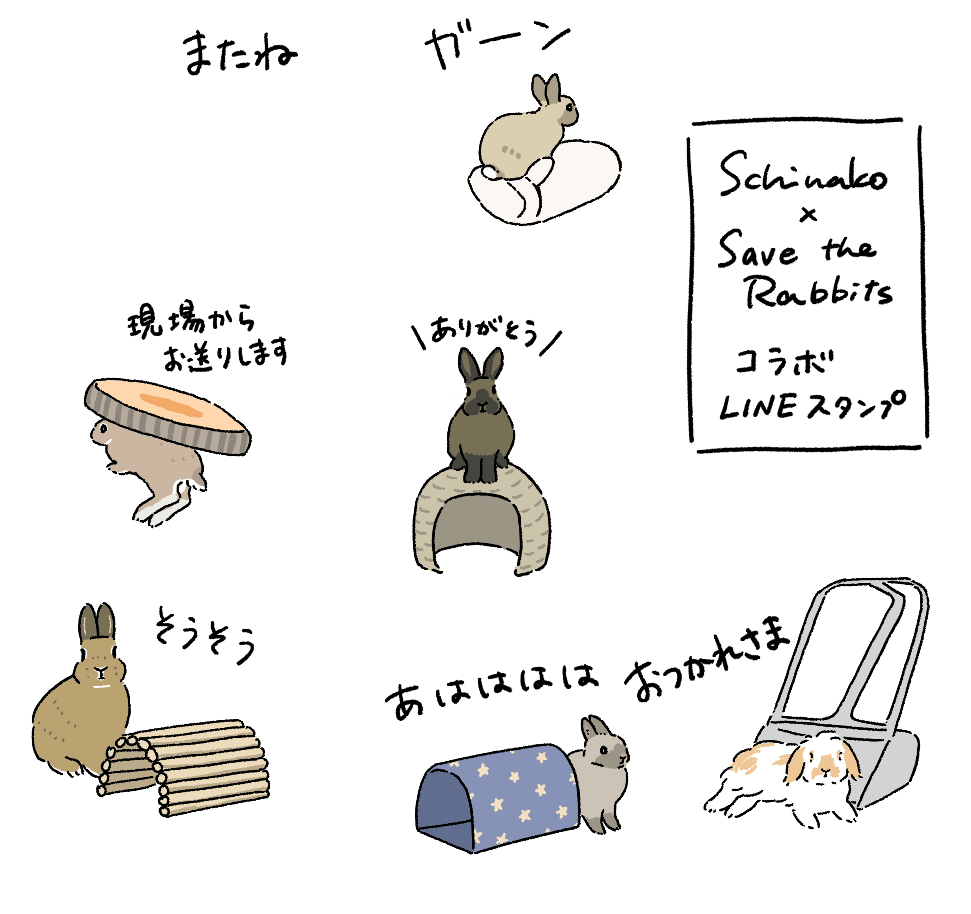 またね
ガーン
Schinako
×
Save the
Rabbits
コラボ
LINEスタンプ
現場から
お送りします
\ありがとう/
そうそう
あはははは
おつかれさま